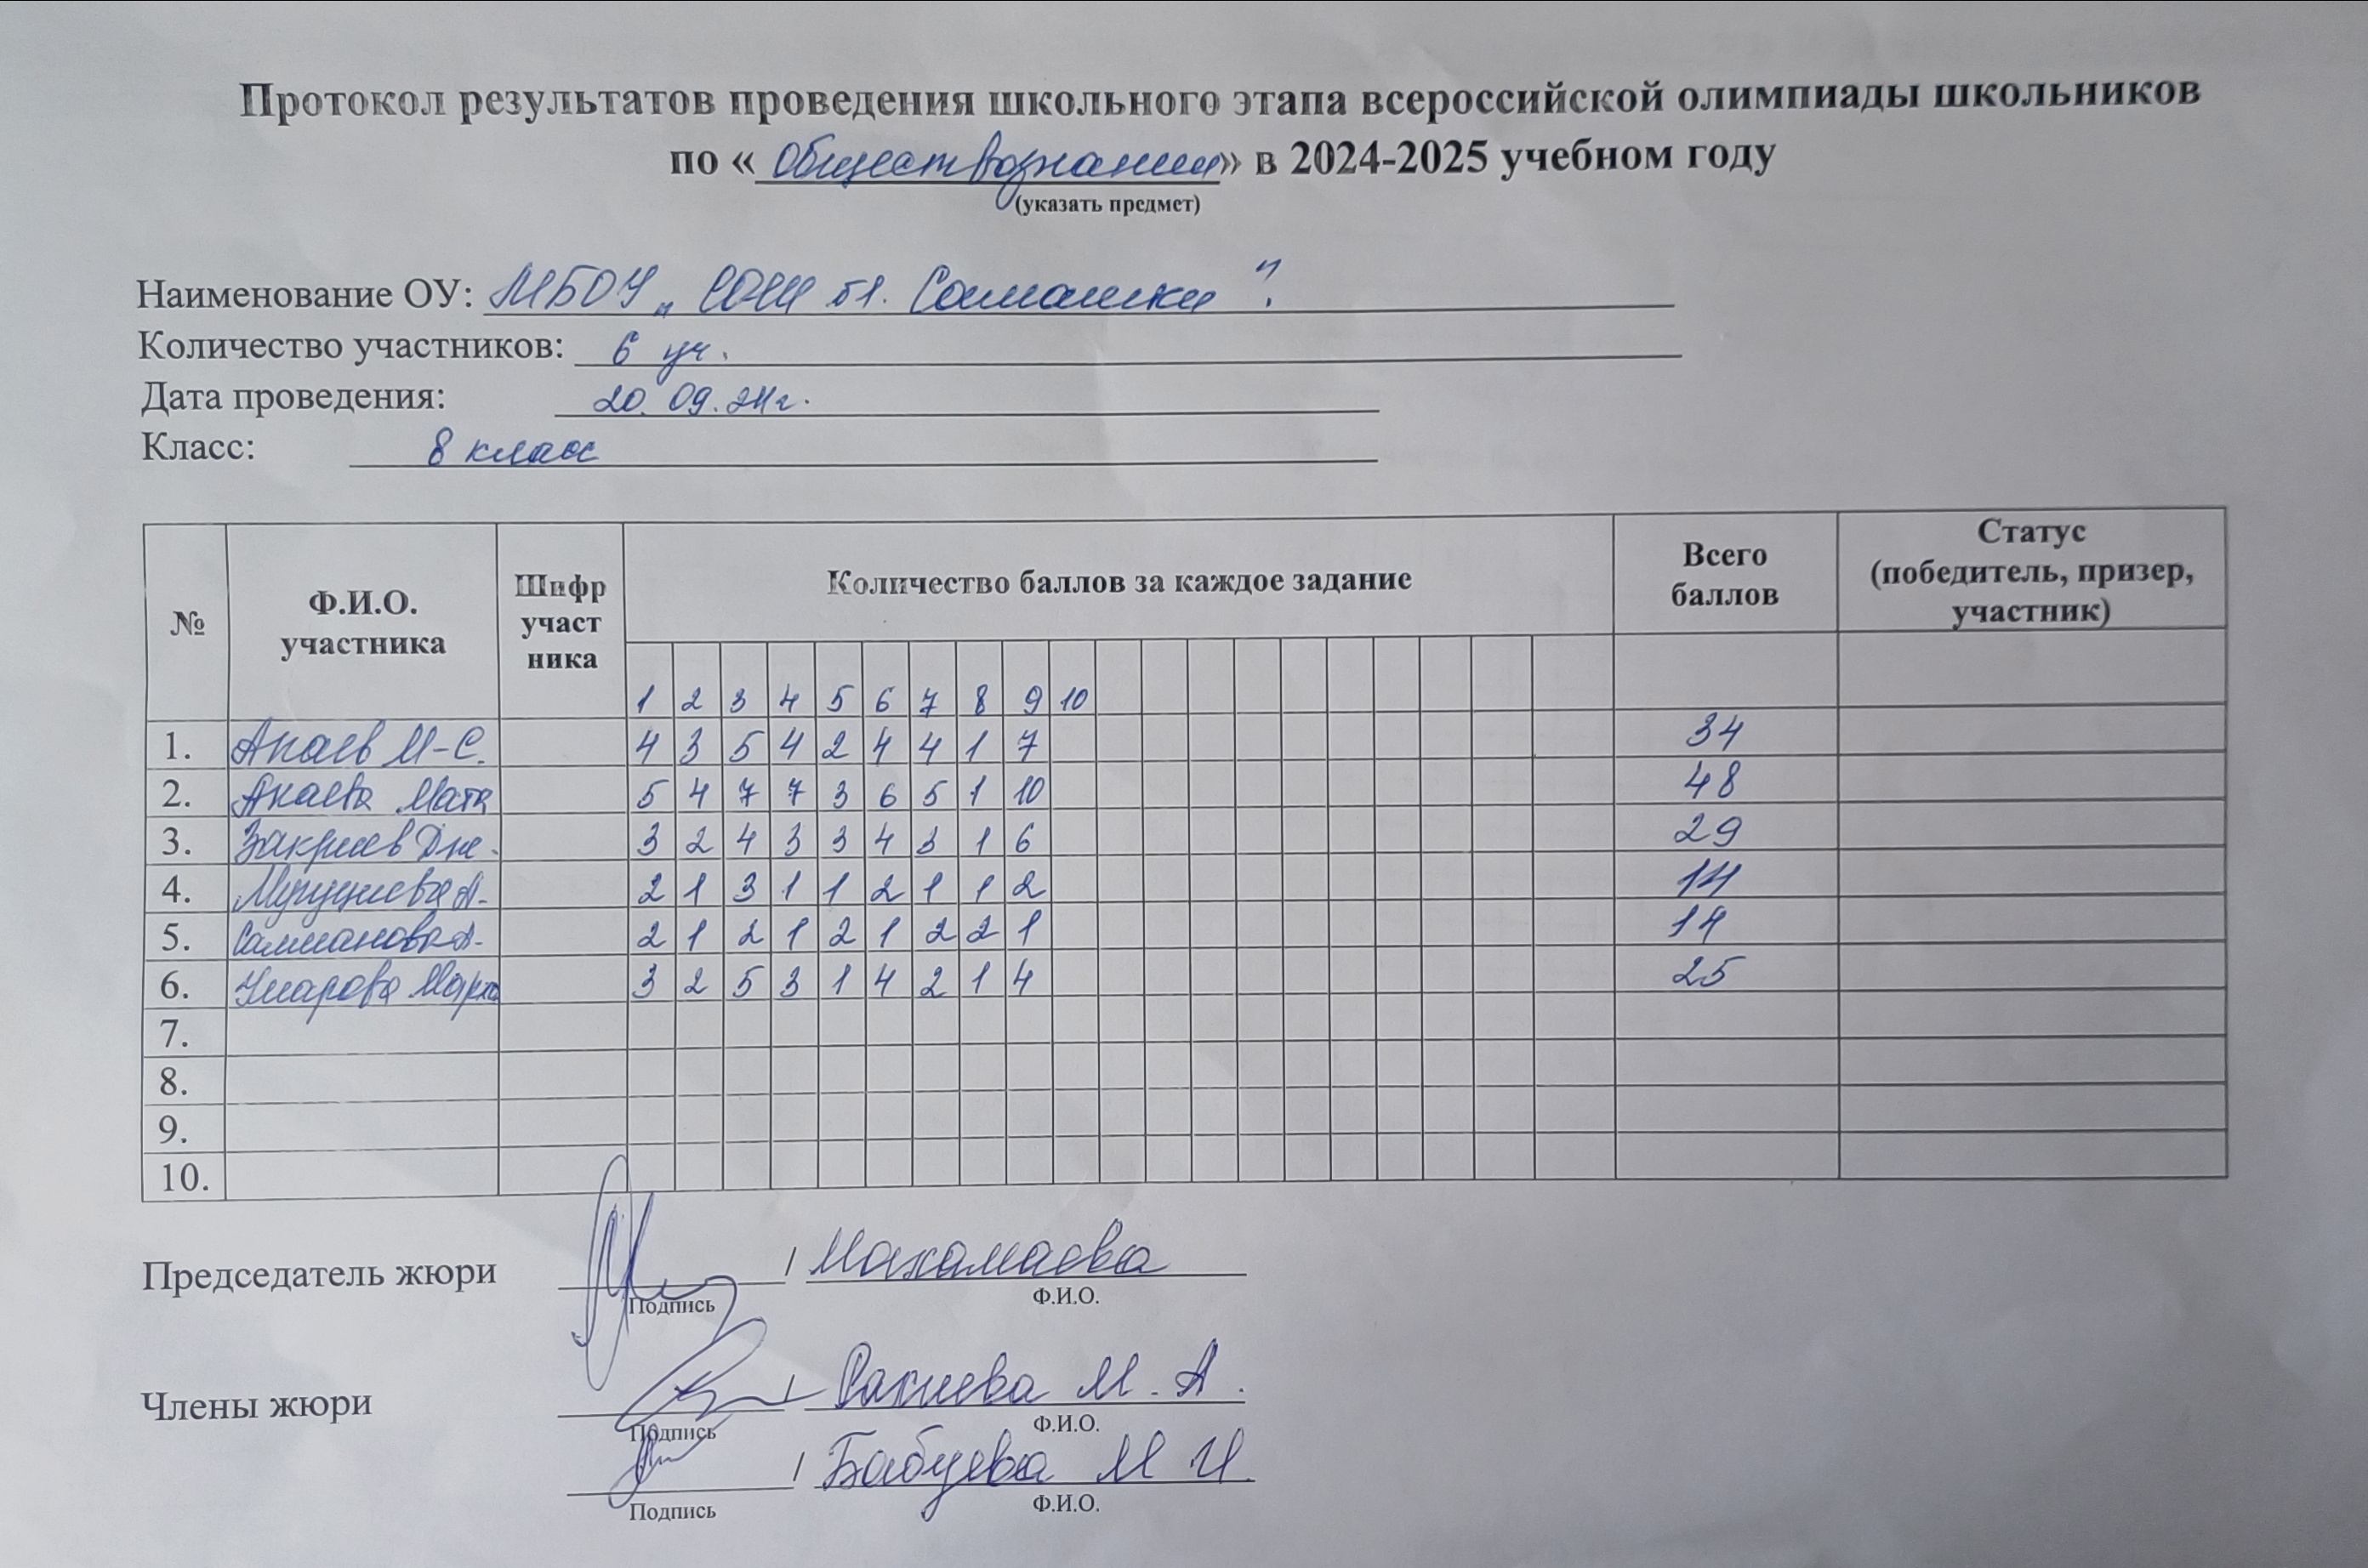 Протокол результатов проведения школьного этапа всероссийской олимпиады школьников
по «Обществознании» в 2024-2025 учебном году
(указать предмет)
Наименование ОУ: МБОУ „СОШ ст. Самашки".
Количество участников: 6 уч.
Дата проведения: 20.09.24г.
Класс: 8 класс
№ Ф.И.О. участника Шифр участ ника Количество баллов за каждое задание Всего баллов Статус (победитель, призер, участник)
1 2 3 4 5 6 7 8 9 10
1. Акаев М-С. 4 3 5 4 2 4 4 1 7 34
2. Акаева 5 4 7 7 3 6 5 1 10 48
3. Закриев 3 2 4 3 3 4 3 1 6 29
4. А. 2 1 3 1 1 2 1 1 2 14
5. А. 2 1 2 1 2 1 2 2 1 14
6. Умарова 3 2 5 3 1 4 2 1 4 25
7.
8.
9.
10.
Председатель жюри / Махамаева
Подпись Ф.И.О.
Члены жюри / М.А.
Подпись Ф.И.О.
/ Бабуева М И.
Подпись Ф.И.О.